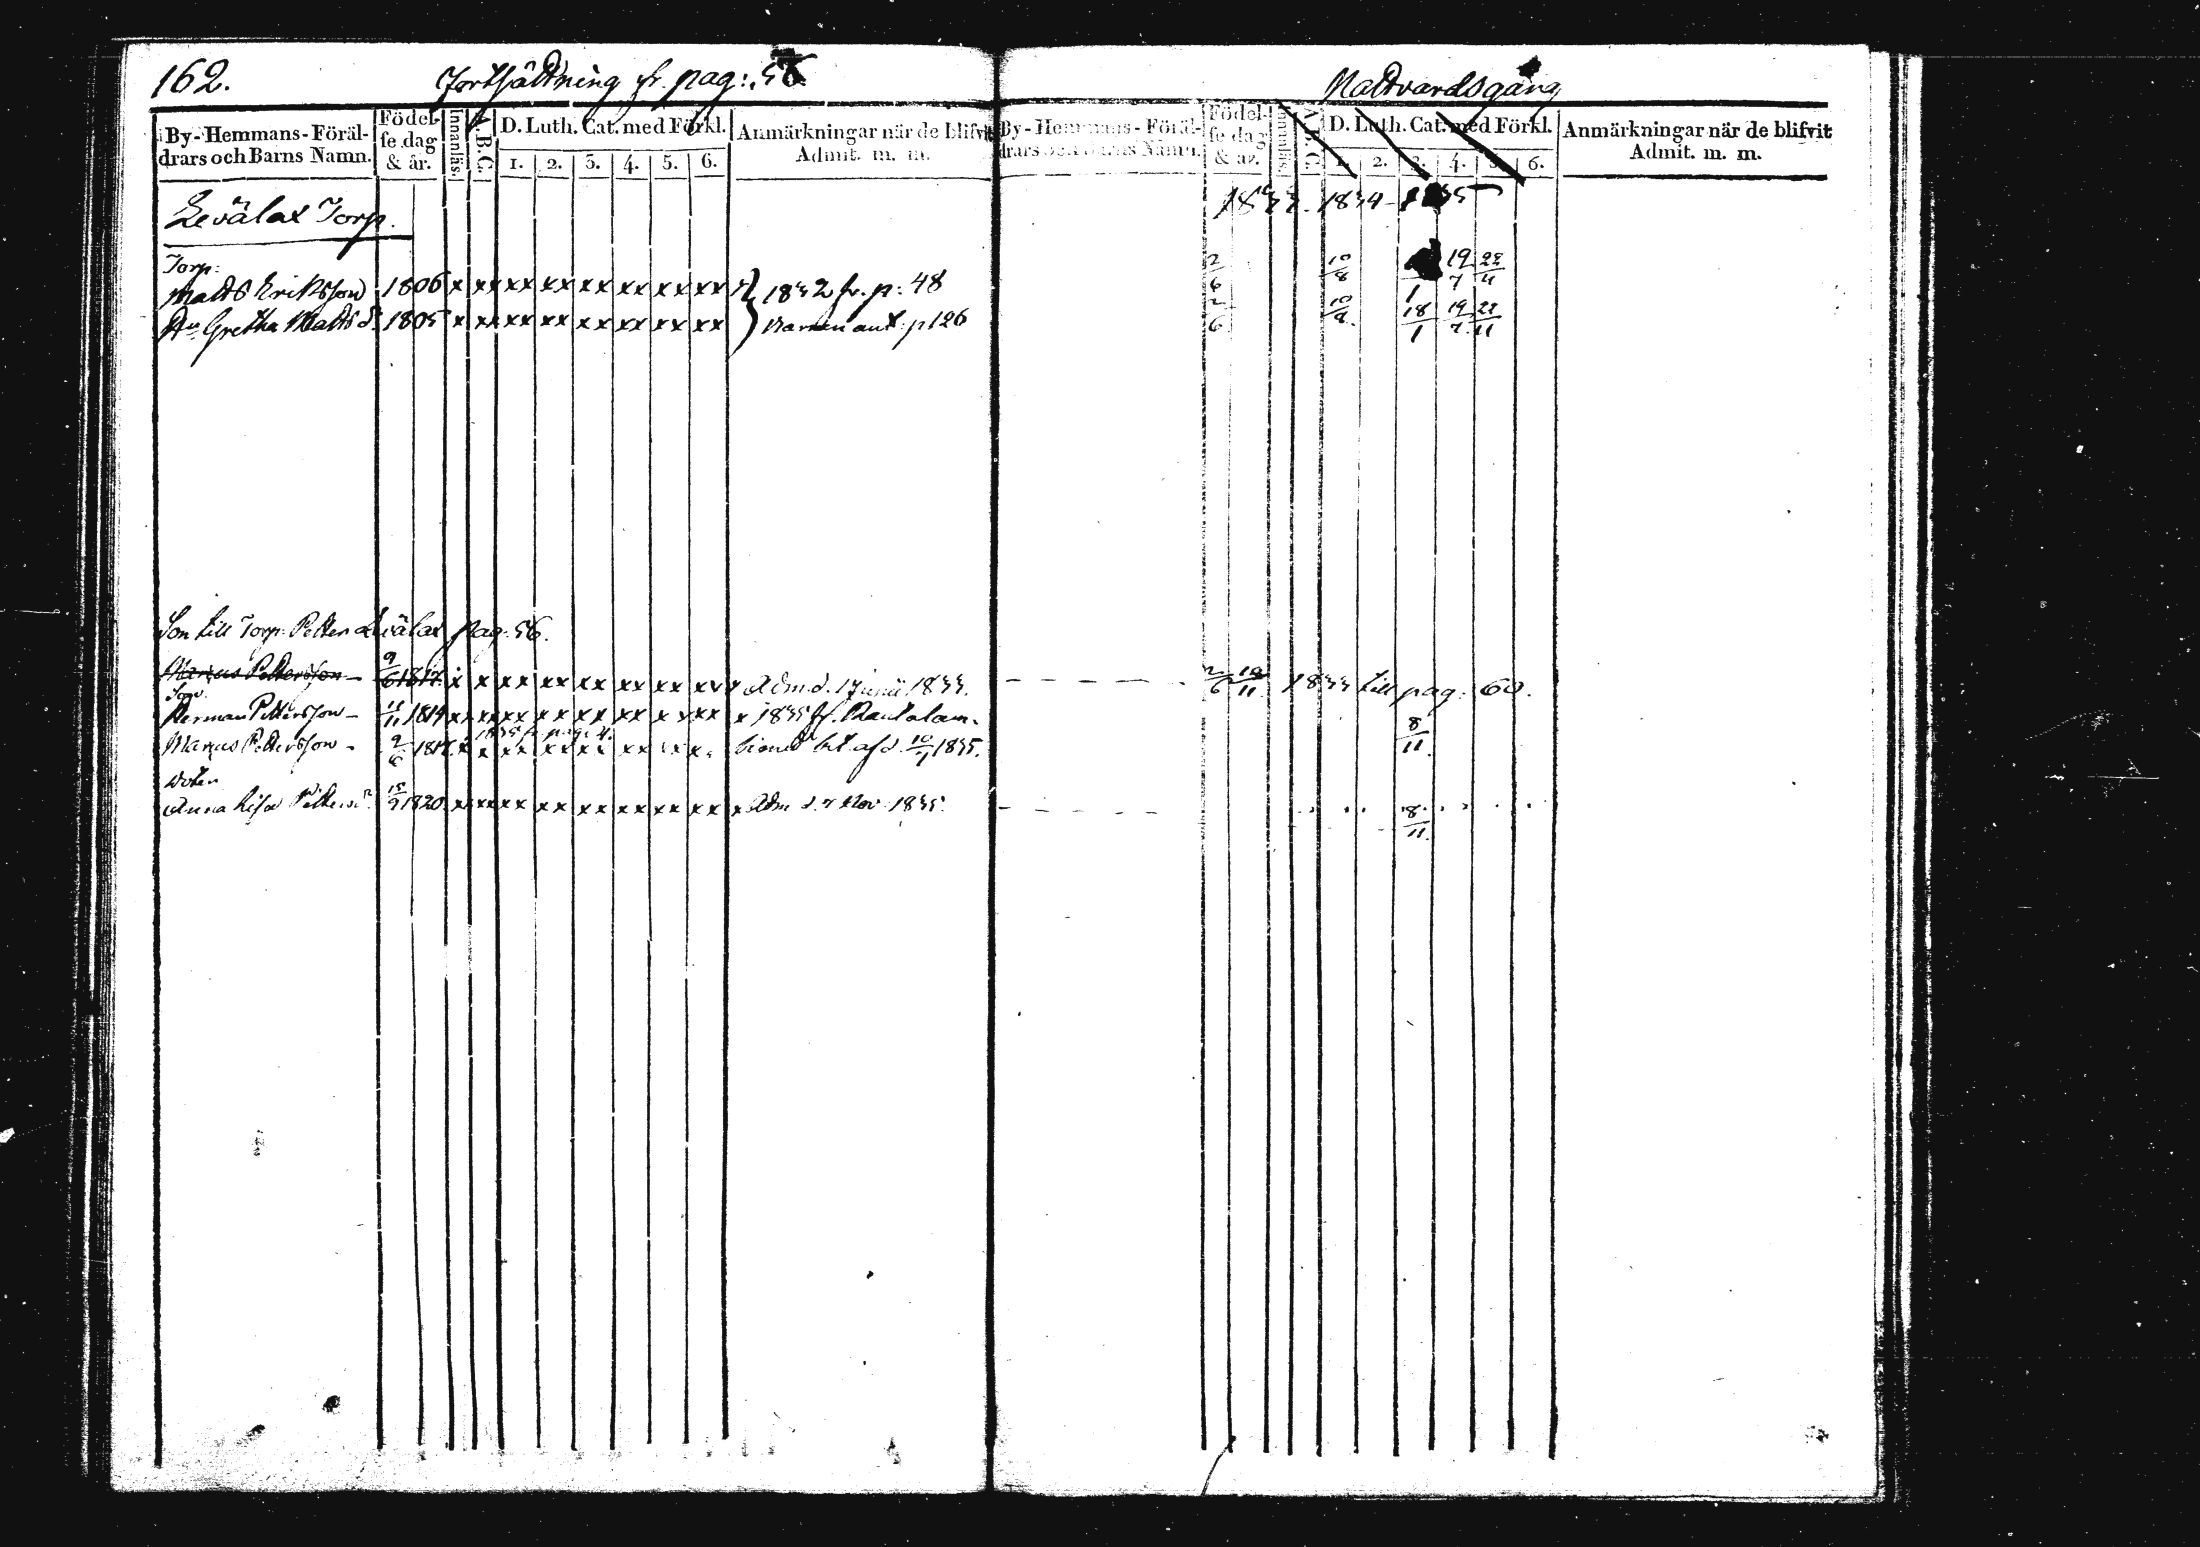 162. Fortsättning fr. pag:
Nattvardsgång
By-Hemmans-Föräl-drars och Barns Namn. Födel-se dag & år. Innanläs. A.B.C. D. Luth. Cat. med Förkl. 1. 2. 3. 4. 5. 6. Anmärkningar när de blifvit Admit. m. m.
By-Hemmans-Föräl-drars och Barns Namn. Födel-se dag & år. Innanläs. A.B.C. D. Luth. Cat. med Förkl. 1. 2. 3. 4. 5. 6. Anmärkningar när de blifvit Admit. m. m.
Levälax Torp.
1833. 1834 - 1835
Torp:
Matts Eriksson 1806 x xx xx xx xx xx xx xx 1832 fr. p: 48 2/6 10/8 19/7 22/11
Hu Gretha Matts d. 1805 x xx xx xx xx xx xx xx Barnen ant. p 126 2/6 10/8. 18/1 19/7. 22/11
Son till Torp: Petter Levälax pag: 56.
Marcus Pettersson 9/6 1817. x x xx xx xx xx xx xx x Adm. d. 1 Junii 1833. 2/6 10/11 1833 till pag: 60.
Son:
Herman Pettersson - 11/11 1814 xx xx xx xx xx xx xx x 1835 fr. Rautalam. 8/11
Marcus Pettersson - 9/6 1817. x x xx xx xx xx xx x. 1835.
Dotter
Anna Lisa Petters d. 15/9 1820. xx xx xx xx xx xx xx xx x Adm d. 7 Nov. 1835. 8/11.